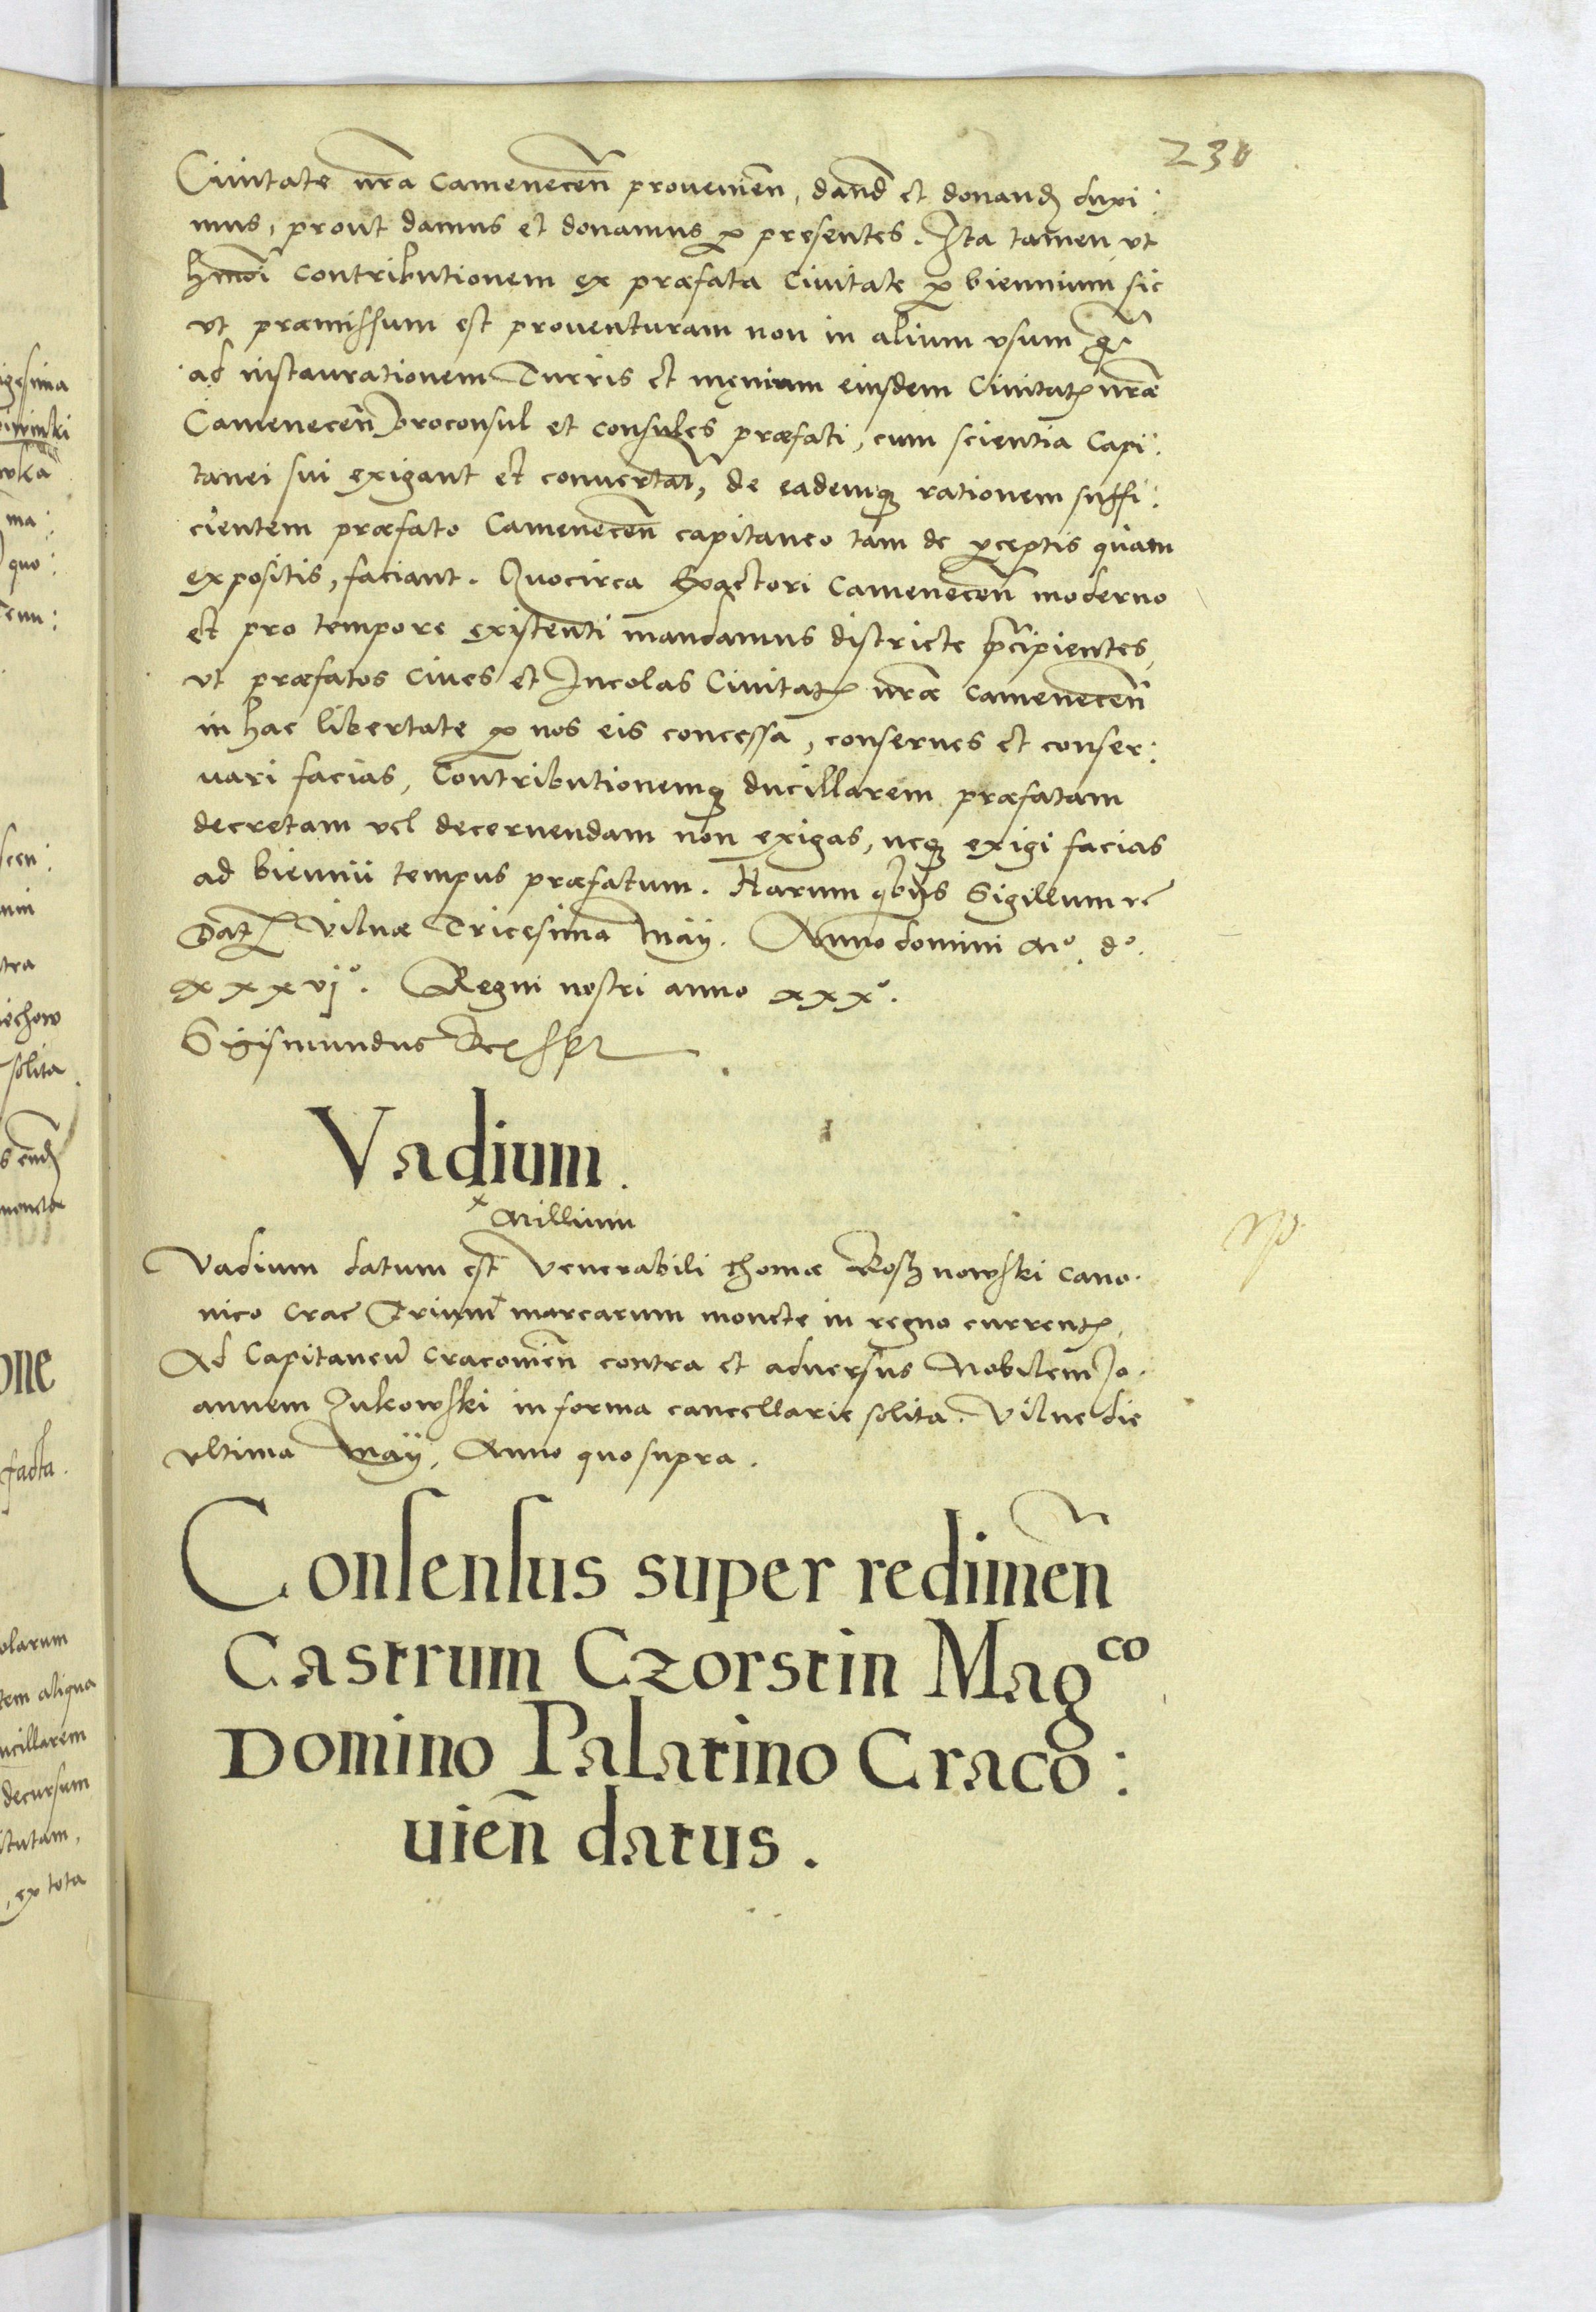 230
Ciuitate nr̃a Camenecen̄ prouenien̄, dand̄ et donand̄ duxi:
mus, prout damus et donamus ꝑ presentes. Ita tamen vt
hmōi contributionem ex præfata Ciuitate ꝑ biennium sic
vt præmissum est prouenturam non in alium vsum
ad instaurationem Turris et męnium eiusdem Ciuitatꝭ nr̃æ
Camenecen̄ proconsul et consules præfati, cum scientia Capi:
tanei sui exigant et conuertant, de eademqꝫ rationem suffi:
cientem præfato Camenecen̄ capitaneo tam de ꝑceptis quam
expositis, faciant. Quocirca Exactori Camenecen̄ moderno
et pro tempore existenti mandamus districte p̄cipientes,
vt præfatos Ciues et Incolas Ciuitatꝭ nr̃æ Camenecen̄
in hac libertate ꝑ nos eis concessa, conserues et conser:
uari facias, Contributionemqꝫ ducillarem præfatam
decretam vel decernendam non exigas, neqꝫ exigi facias
ad biennii tempus præfatum. Harum qb̄us Sigillum rē
Datꝭ Vilnæ Tricesima Maÿ. Anno domini Mº. dº.
xxxvjº. Regni nostri anno xxxº.
Sigismundus Rex sst
Vadium.
x Millium
Vadium datum est Venerabili Thomæ Rosznowski cano.
nico Crac̄ Trium x marcarum monete in regno currentꝭ,
Ad Capitaneū Cracouien̄ contra et aduersus Nobilem Jo.
annem Zukowski in forma cancellarie solita. Vilne die
vltima Maÿ, Anno quo supra.
Consensus super redimen̄
Castrum Czorstin Mag^co
Domino Palatino Craco:
uien̄ datus.